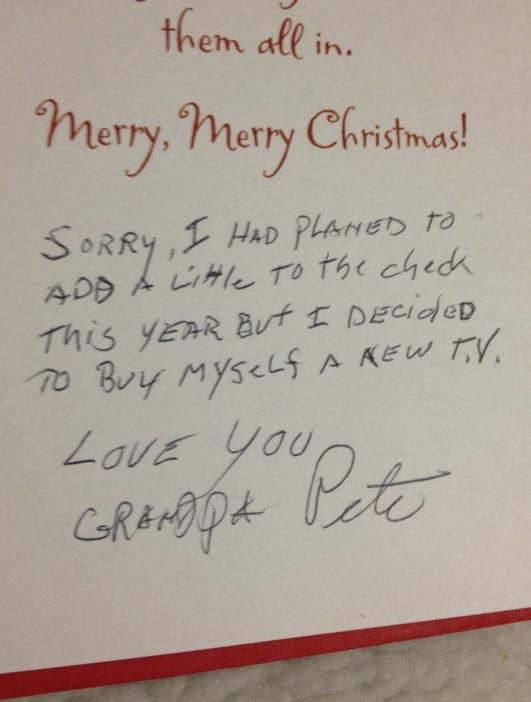 them all in.
Merry, Merry Christmas!
SORRY, I HAD PLANED TO
ADD A LittLe TO the check
THis YEAR BUt I DECiDED
TO BUY MYSeLf A NEW T.V.
LOVE YOU
GRANDPA Pete